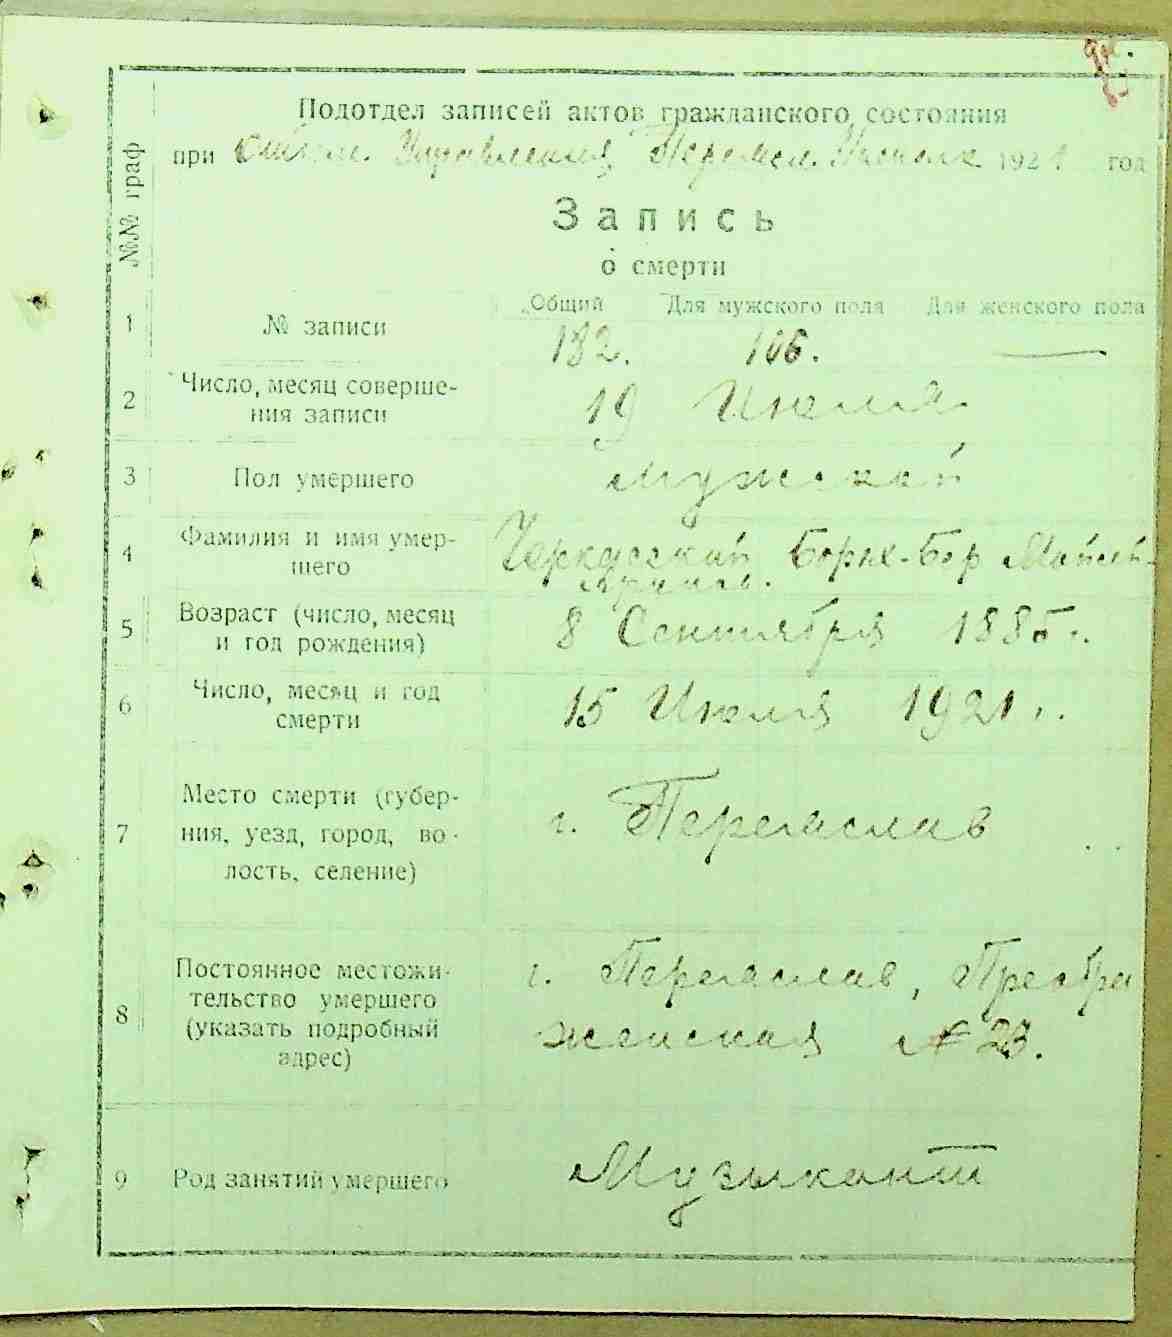 Подотдел записей актов гражданского состояния
при Управления Уисполк 1921 год
№№ граф
Запись
о смерти
Общий Для мужского пола Для женского пола
1 № записи 182. 106. —
2 Число, месяц соверше-
ния записи 19 Июля
3 Пол умершего Мужской
4 Фамилия и имя умер-
шего Черкасский Борух-Бер
5 Возраст (число, месяц
и год рождения) 8 Сентября 1885 г.
6 Число, месяц и год
смерти 15 Июля 1921 г.
7 Место смерти (губер-
ния, уезд, город, во-
лость, селение) г. Переяслав
8 Постоянное местожи-
тельство умершего
(указать подробный
адрес) г. Переяслав, Преобра
женская № 23.
9 Род занятий умершего Музыкант